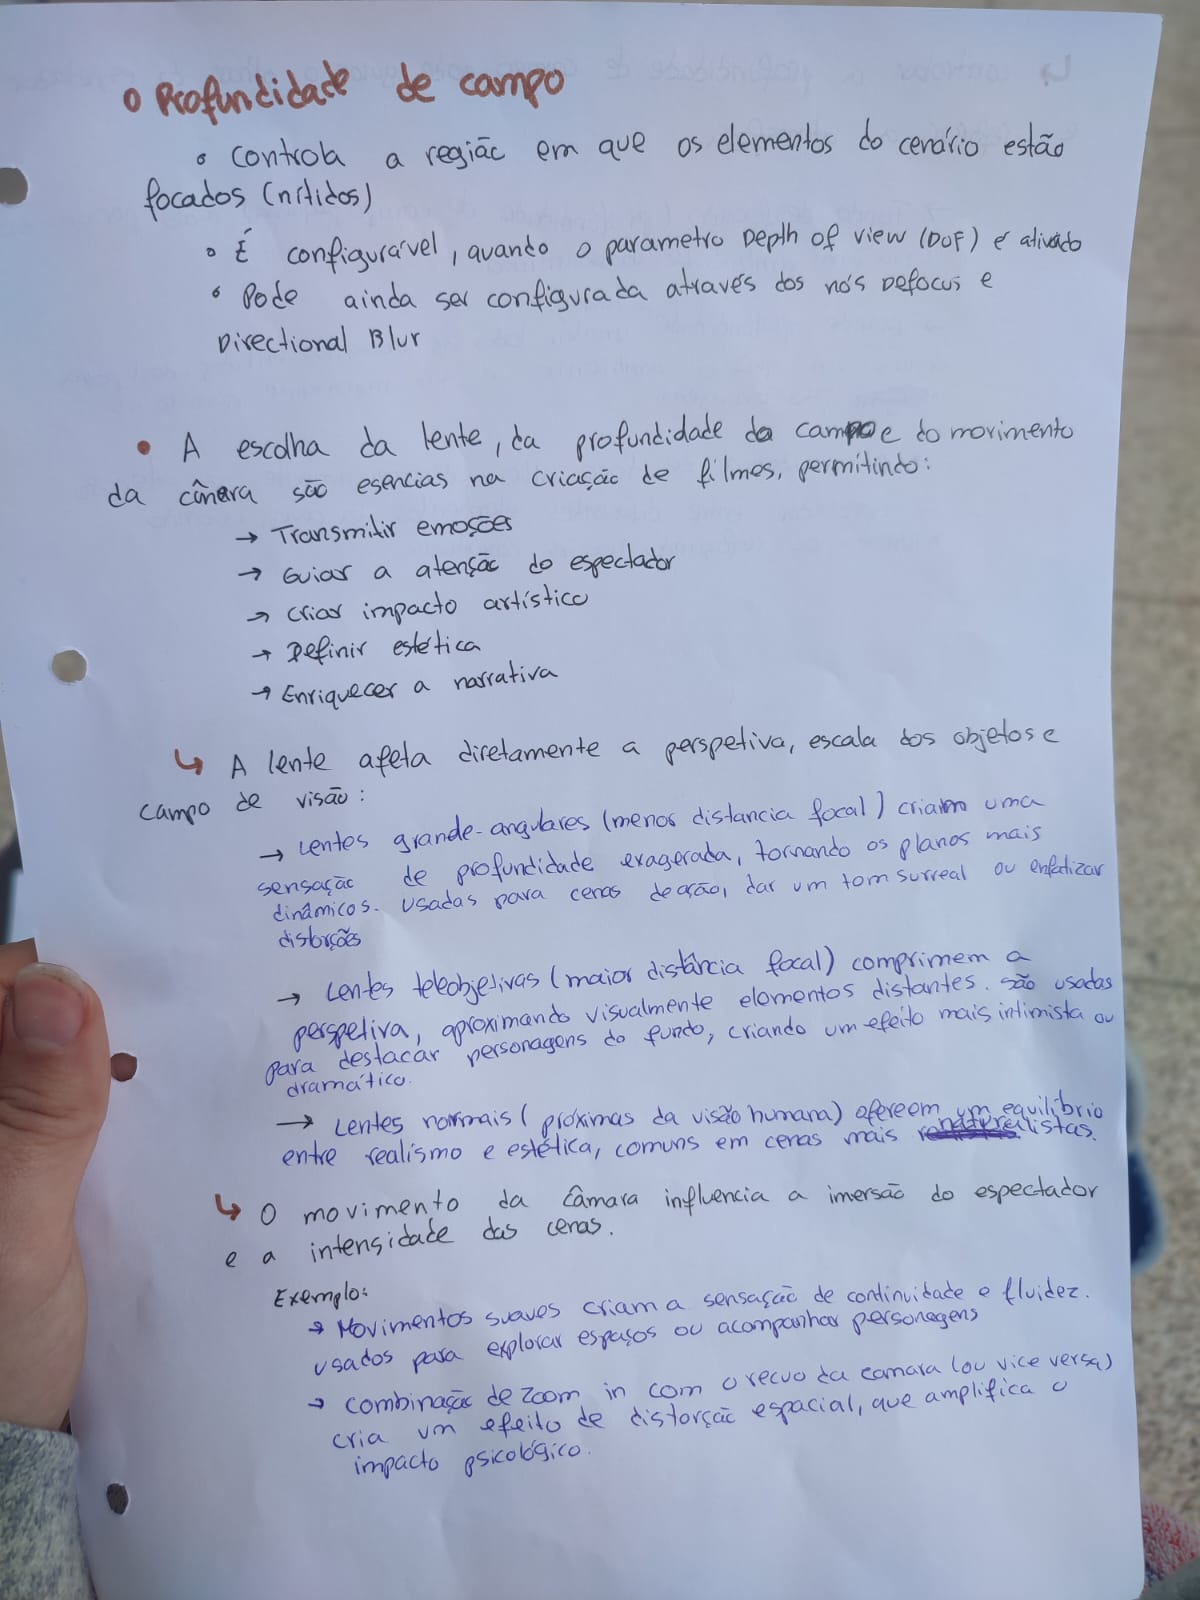 o Profundidade de campo
o Controla a região em que os elementos do cenário estão
focados (nítidos)
o É configurável, quando o parametro Depth of view (DOF) é ativado
o Pode ainda ser configurada através dos nós Defocus e
Directional Blur
• A escolha da lente, da profundidade do campo e do movimento
da câmara são esencias na criação de filmes, permitindo:
→ Transmitir emoções
→ Guiar a atenção do espectador
→ Criar impacto artístico
→ Definir estética
→ Enriquecer a narrativa
↳ A lente afeta diretamente a perspetiva, escala dos objetos e
campo de visão:
→ Lentes grande-angulares (menor distancia focal) criam uma
sensação de profundidade exagerada, tornando os planos mais
dinâmicos. Usadas para cenas de ação, dar um tom surreal ou enfatizar
distorções
→ Lentes teleobjetivas (maior distância focal) comprimem a
perspetiva, aproximando visualmente elementos distantes. São usadas
para destacar personagens do fundo, criando um efeito mais intimista ou
dramático.
→ Lentes normais (próximas da visão humana) ofereem um equilíbrio
entre realismo e estética, comuns em cenas mais naturalistas.
↳ O movimento da câmara influencia a imersão do espectador
e a intensidade das cenas.
Exemplo:
→ Movimentos suaves criam a sensação de continuidade e fluidez.
usados para explorar espaços ou acompanhar personagens
→ Combinação de zoom in com o recuo da camara (ou vice versa)
cria um efeito de distorção espacial, que amplifica o
impacto psicológico.